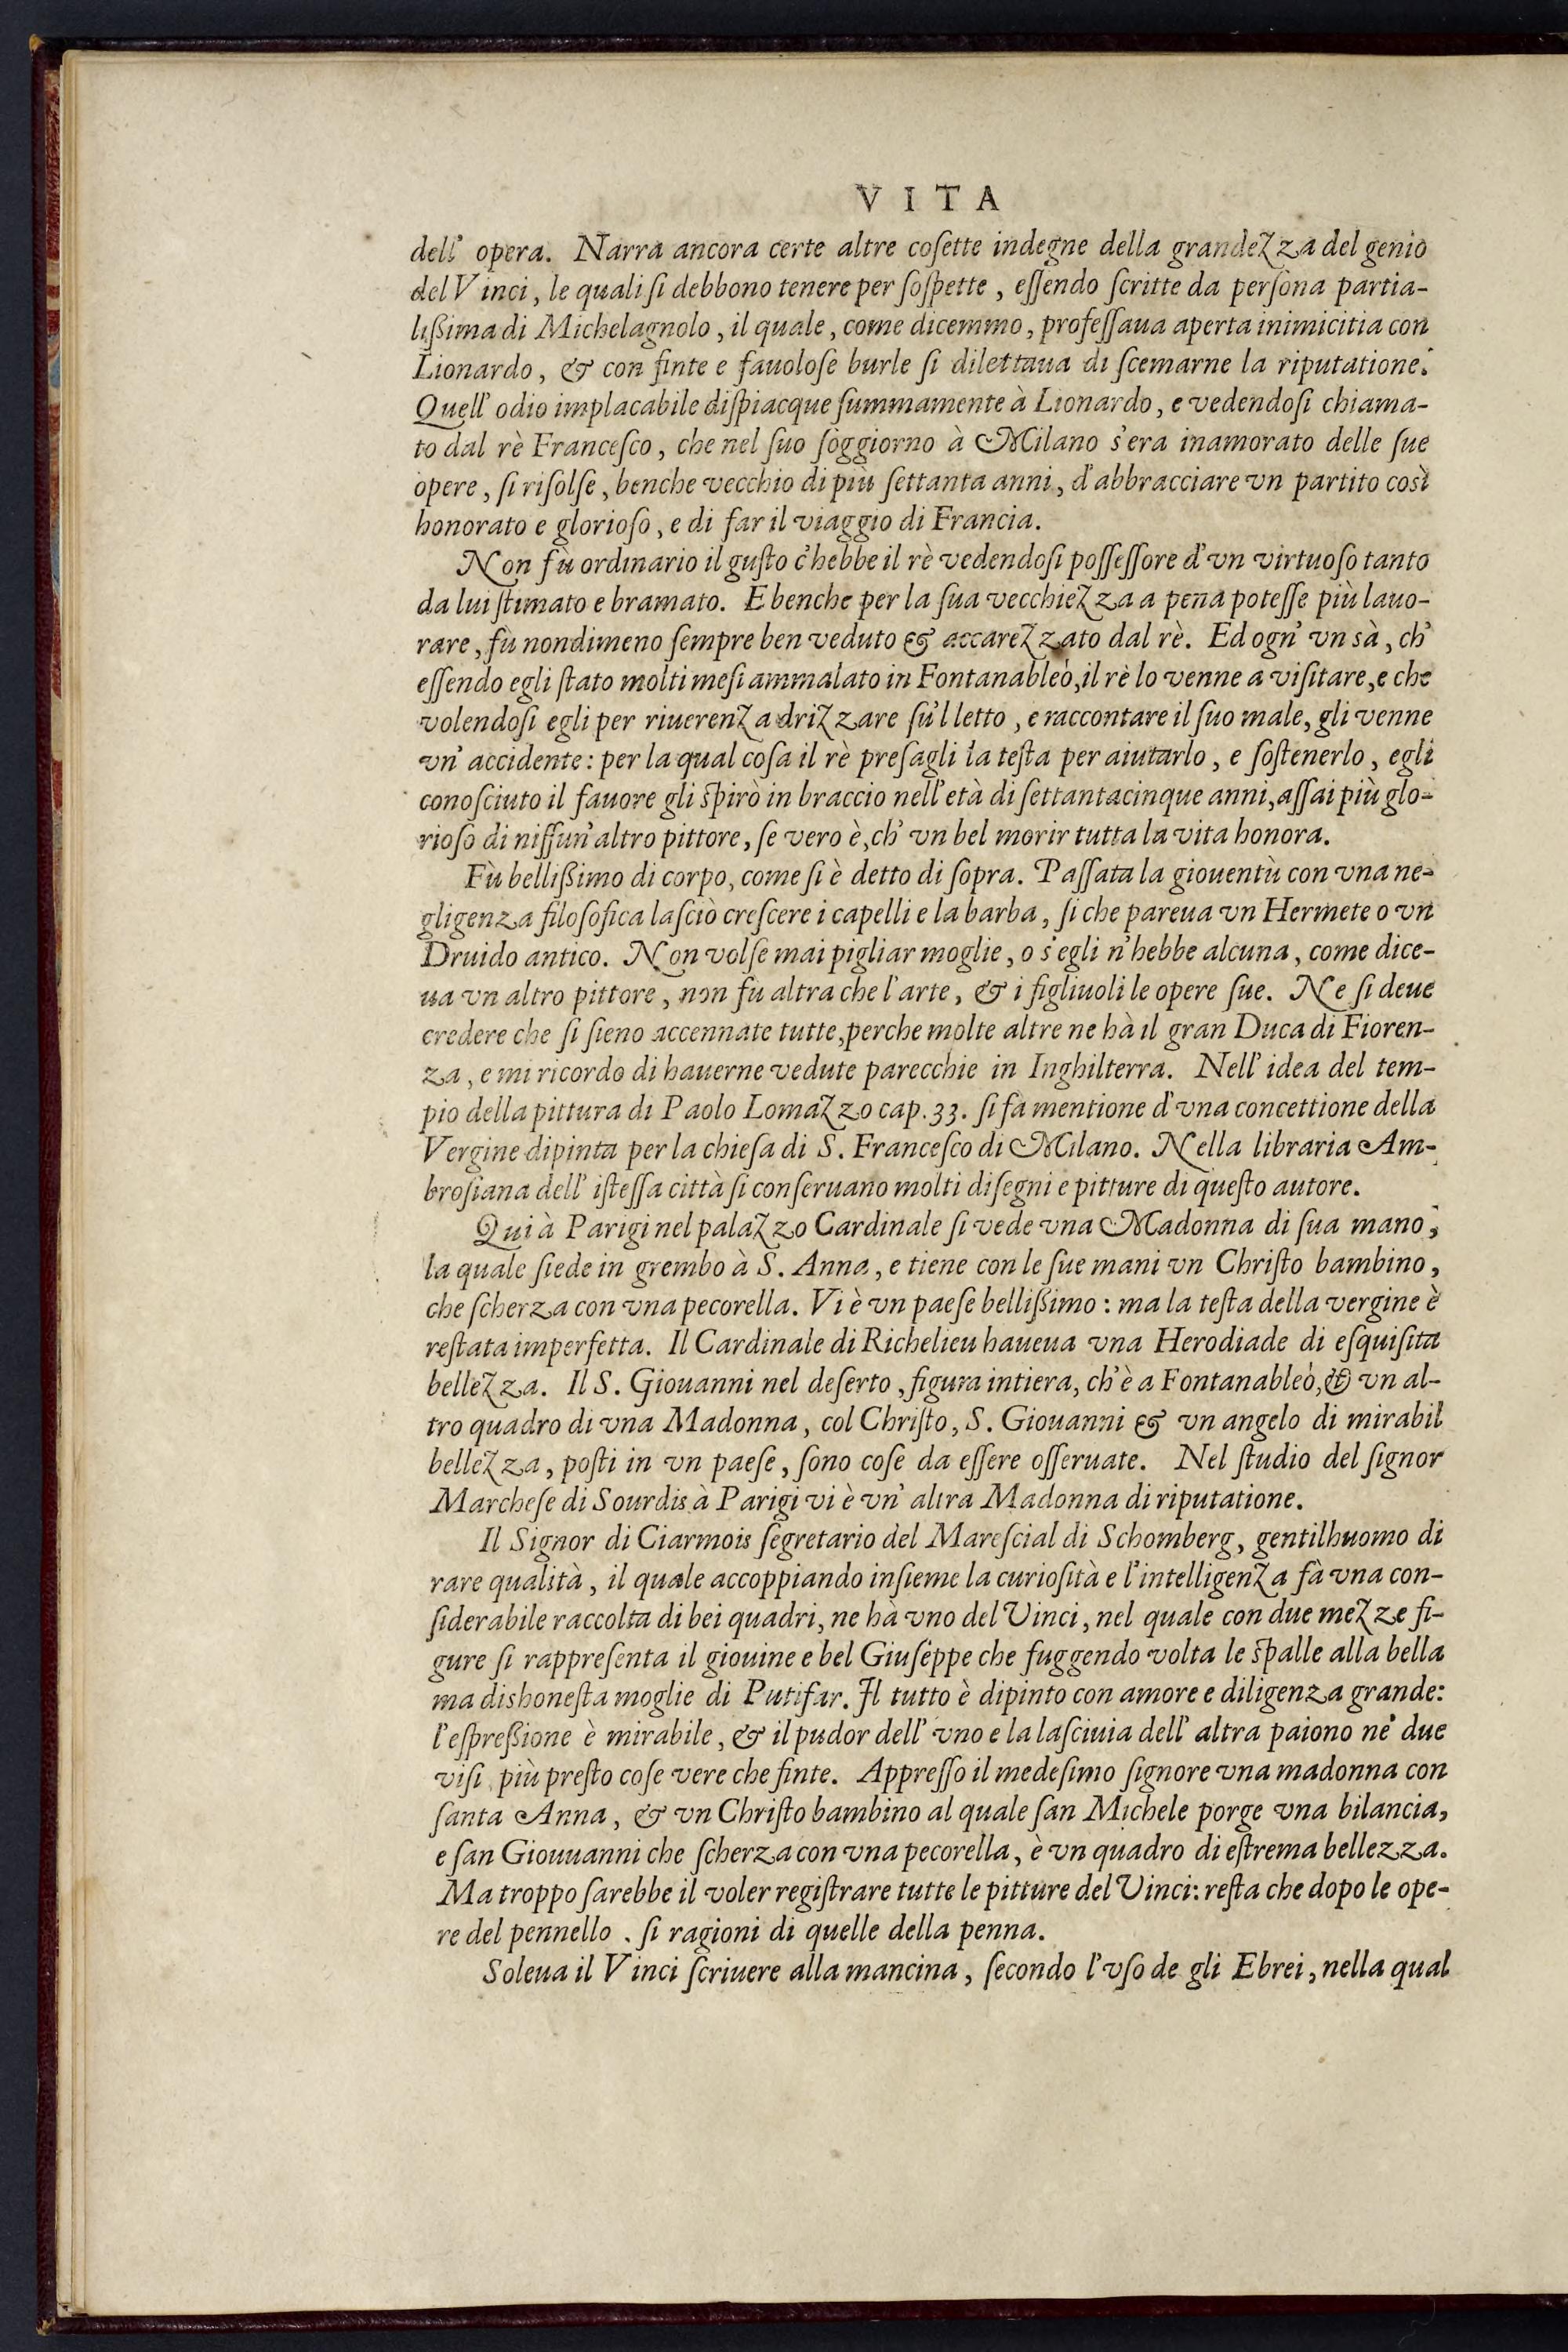 VITA
dell' opera. Narra ancora certe altre coſette indegne della grandezza del genio
del Vinci, le quali ſi debbono tenere per ſoſpette, eſſendo ſcritte da perſona partia-
lißima di Michelagnolo, il quale, come dicemmo, profeſſaua aperta inimicitia con
Lionardo, & con finte e fauoloſe burle ſi dilettaua di ſcemarne la riputatione.
Quell' odio implacabile diſpiacque ſummamente à Lionardo, e vedendoſi chiama-
to dal rè Franceſco, che nel ſuo ſoggiorno à Milano s'era inamorato delle ſue
opere, ſi riſolſe, benche vecchio di più ſettanta anni, d'abbracciare vn partito così
honorato e glorioſo, e di far il viaggio di Francia.
Non fù ordinario il guſto c'hebbe il rè vedendoſi poſſeſſore d'vn virtuoſo tanto
da lui ſtimato e bramato. E benche per la ſua vecchiezza a pena poteſſe più lauo-
rare, fù nondimeno ſempre ben veduto & accarezzato dal rè. Ed ogn' vn sà, ch'
eſſendo egli ſtato molti meſi ammalato in Fontanableò, il rè lo venne a viſitare, e che
volendoſi egli per riuerenza drizzare sù'l letto, e raccontare il ſuo male, gli venne
vn' accidente: per la qual coſa il rè preſagli la teſta per aiutarlo, e ſoſtenerlo, egli
conoſciuto il fauore gli ſpirò in braccio nell' età di ſettantacinque anni, aſſai più glo-
rioſo di niſſun' altro pittore, ſe vero è, ch' vn bel morir tutta la vita honora.
Fù bellißimo di corpo, come ſi è detto di ſopra. Paſſata la giouentù con vna ne-
gligenza filoſofica laſciò creſcere i capelli e la barba, ſi che pareua vn Hermete o vn
Druido antico. Non volſe mai pigliar moglie, o s'egli n'hebbe alcuna, come dice-
ua vn altro pittore, non fu altra che l'arte, & i figliuoli le opere ſue. Ne ſi deue
credere che ſi ſieno accennate tutte, perche molte altre ne hà il gran Duca di Fioren-
za, e mi ricordo di hauerne vedute parecchie in Inghilterra. Nell' idea del tem-
pio della pittura di Paolo Lomazzo cap. 33. ſi fa mentione d'vna concettione della
Vergine dipinta per la chieſa di S. Franceſco di Milano. Nella libraria Am-
broſiana dell' iſteſſa città ſi conſeruano molti diſegni e pitture di queſto autore.
Qui à Parigi nel palazzo Cardinale ſi vede vna Madonna di ſua mano,
la quale ſiede in grembo à S. Anna, e tiene con le ſue mani vn Chriſto bambino,
che ſcherza con vna pecorella. Vi è vn paeſe bellißimo: ma la teſta della vergine è
reſtata imperfetta. Il Cardinale di Richelieu haueua vna Herodiade di eſquiſita
bellezza. Il S. Giouanni nel deſerto, figura intiera, ch'è a Fontanableò, & vn al-
tro quadro di vna Madonna, col Chriſto, S. Giouanni & vn angelo di mirabil
bellezza, poſti in vn paeſe, ſono coſe da eſſere oſſeruate. Nel ſtudio del ſignor
Marcheſe di Sourdis à Parigi vi è vn' altra Madonna di riputatione.
Il Signor di Ciarmois ſegretario del Mareſcial di Schomberg, gentilhuomo di
rare qualità, il quale accoppiando inſieme la curioſità e l'intelligenza fà vna con-
ſiderabile raccolta di bei quadri, ne hà vno del Vinci, nel quale con due mezze fi-
gure ſi rappreſenta il giouine e bel Giuſeppe che fuggendo volta le ſpalle alla bella
ma dishoneſta moglie di Putifar. Il tutto è dipinto con amore e diligenza grande:
l'eſpreßione è mirabile, & il pudor dell' vno e la laſciuia dell' altra paiono ne' due
viſi più preſto coſe vere che finte. Appreſſo il medeſimo ſignore vna madonna con
ſanta Anna, & vn Chriſto bambino al quale ſan Michele porge vna bilancia,
e ſan Giouuanni che ſcherza con vna pecorella, è vn quadro di eſtrema bellezza.
Ma troppo ſarebbe il voler regiſtrare tutte le pitture del Vinci: reſta che dopo le ope-
re del pennello, ſi ragioni di quelle della penna.
Soleua il Vinci ſcriuere alla mancina, ſecondo l'vſo de gli Ebrei, nella qual